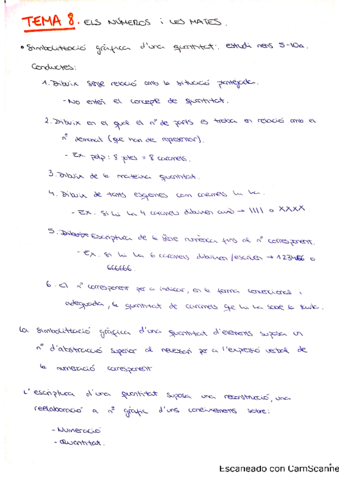 TEMA 8. ELS NÚMEROS I LES MATES.
• Simbolització gràfica d'una quantitat: estudi nens 5-10a.
Conductes:
1. Dibuix sense relació amb la situació plantejada.
- No entén el concepte de quantitat.
2. Dibuix en el qual el nº de parts es troba en relació amb el
nº demanat (que han de representar).
- Ex. pulp: 8 potes = 8 caramels.
3. Dibuix de la mateixa quantitat.
4. Dibuix de tants esquemes com caramels hi ha.
- Ex. Si hi ha 4 caramels dibuixen això → IIII o XXXX
5. Escriptura de la sèrie numèrica fins al nº corresponent.
- Ex. si hi ha 6 caramels dibuixen/escriuen → 123456 o
666666
6. El nº corresponent per a indicar, en la forma convencional i
adequada, la quantitat de caramels que hi ha sobre la taula.
La simbolització gràfica d'una quantitat d'elements suposa un
nº d'abstracció superior al necessari per a l'expressió verbal de
la numeració corresponent
L'escriptura d'una quantitat suposa una reconstrucció, una
reelaboració a nº gràfic d'uns coneixements sobre:
- Numeració
- Quantitat.
Escaneado con CamScanne